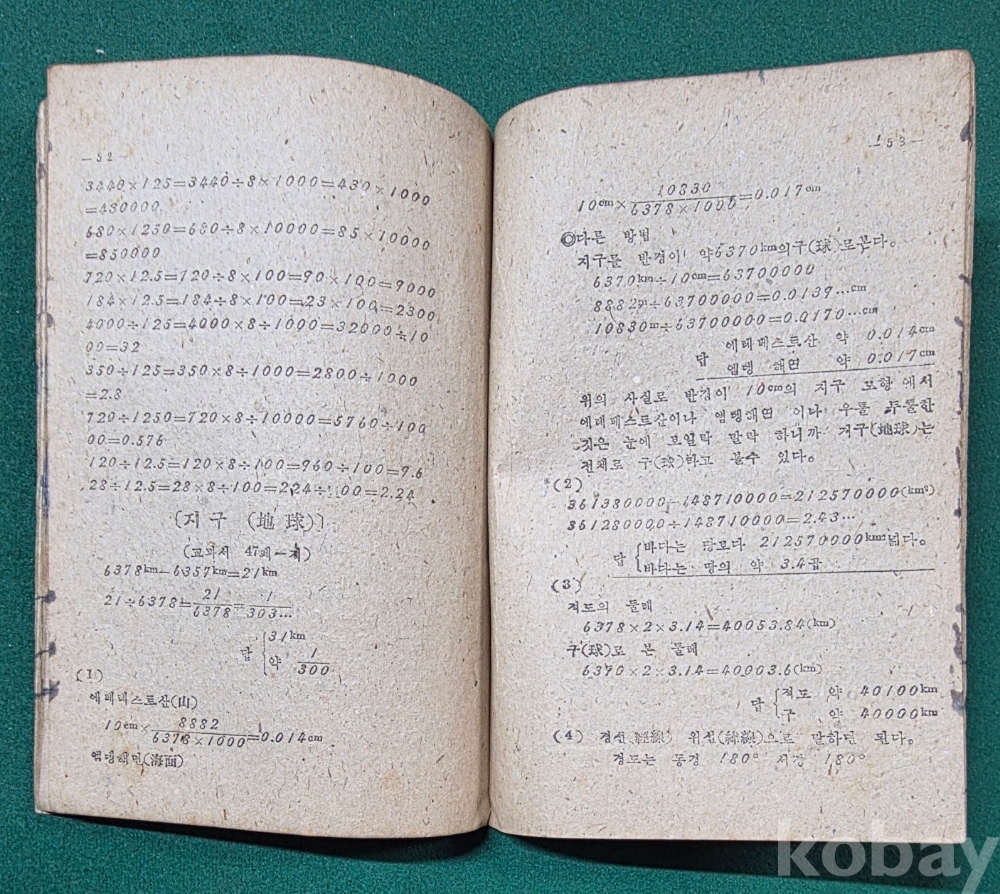 —52—
3440×125=3440÷8×1000=430×1000
=430000
680×1250=680÷8×10000=85×10000
=850000
720×12.5=120÷8×100=90×100=9000
184×12.5=184÷8×100=23×100=2300
4000÷125=4000×8÷1000=32000÷10
00=32
350÷125=350×8÷1000=2800÷1000
=2.8
720÷1250=720×8÷10000=5760÷100
00=0.576
120÷12.5=120×8÷100=960÷100=9.6
28÷12.5=28×8÷100=224÷100=2.24
〔지구 (地球)〕
(교과서 47페—지)
6378km−6357km=21km
21÷6378=21/6378=1/303...
답 {31km
약 1/300
(1)
에베레스트산(山)
10cm×8882/6378×1000=0.014cm
엠뎅해면(海面)
—53—
10cm×10830/6378×1000=0.017cm
◎다른 방법
지구를 반경이 약6370km의구(球)로본다。
6370km÷10cm=63700000
8882m÷63700000=0.0139...cm
10830m÷63700000=0.0170...cm
답 에베레스트산 약 0.014cm
엠뎅 해연 약 0.017cm
위의 사실로 반경이 10cm의 지구 모형에서
에베레스트산이나 엠뎅해연 이나 우툴 두툴한
것은 눈에 보일락 말락 하니까 지구(地球)는
전체로 구(球)라고 볼수 있다。
(2)
361380000−148710000=212570000(km²)
361280000÷148710000=2.43...
답 {바다는 땅보다 212570000km²넓다。
바다는 땅의 약 3.4곱
(3)
적도의 둘레
6378×2×3.14=40053.84(km)
구(球)로 본 둘레
6370×2×3.14=40003.6(km)
답 {적도 약 40100km
구 약 40000km
(4) 경선(經線) 위선(緯線)으로 말하면 된다。
경도는 동경 180° 서경 180°
kobay